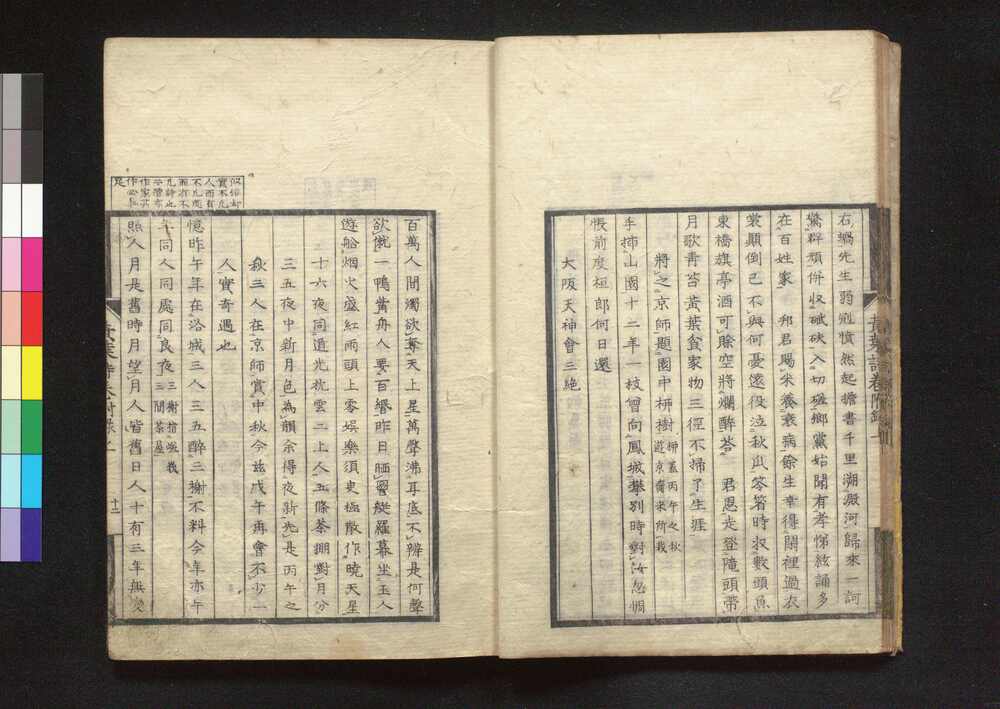 右蝸先生弱冠憤然起擔書千里溯澱河歸來一訶
驚群頑併收珷玞入切磋鄉黨始聞有孝悌絃誦多
在百姓家 邦君賜米養衰病餘生幸得閭裡過衣
裳顛倒已不與何憂遠役泣秋瓜笭箵時收數頭魚
東橋旗亭酒可賒空將爛醉荅 君恩走登隴頭帶
月歌青苔黃葉貧家物三徑不掃了生涯
將之京師題園中栁樹 栁蓋丙午之秋
遊京齎来所栽
手揷山園十二年一枝曾向鳳城攀別時對汝忽惆
悵前度桓郎何日還
大阪天神會三絶
百萬人間濁欲奪天上星萬聲沸耳底不辨是何聲
欲僦一鴨觜舟人要百緡昨日晒罾艇羅幕坐玉人
遊船烟火盛紅雨頭上零娯樂須臾極散作曉天星
十六夜同道光抗雲二上人五條茶棚對月分
三五夜中新月色為韻余得夜新光是丙午之
秋三人在京師賞中秋今茲戊午再會不少一
人實奇遇也
憶昨午年在洛城三人三五醉三榭不料今年亦午
年同人同處同良夜
三間茶屋
照人月是舊時月望月人皆舊日人十有三年無
青葉詩卷附錄
十二